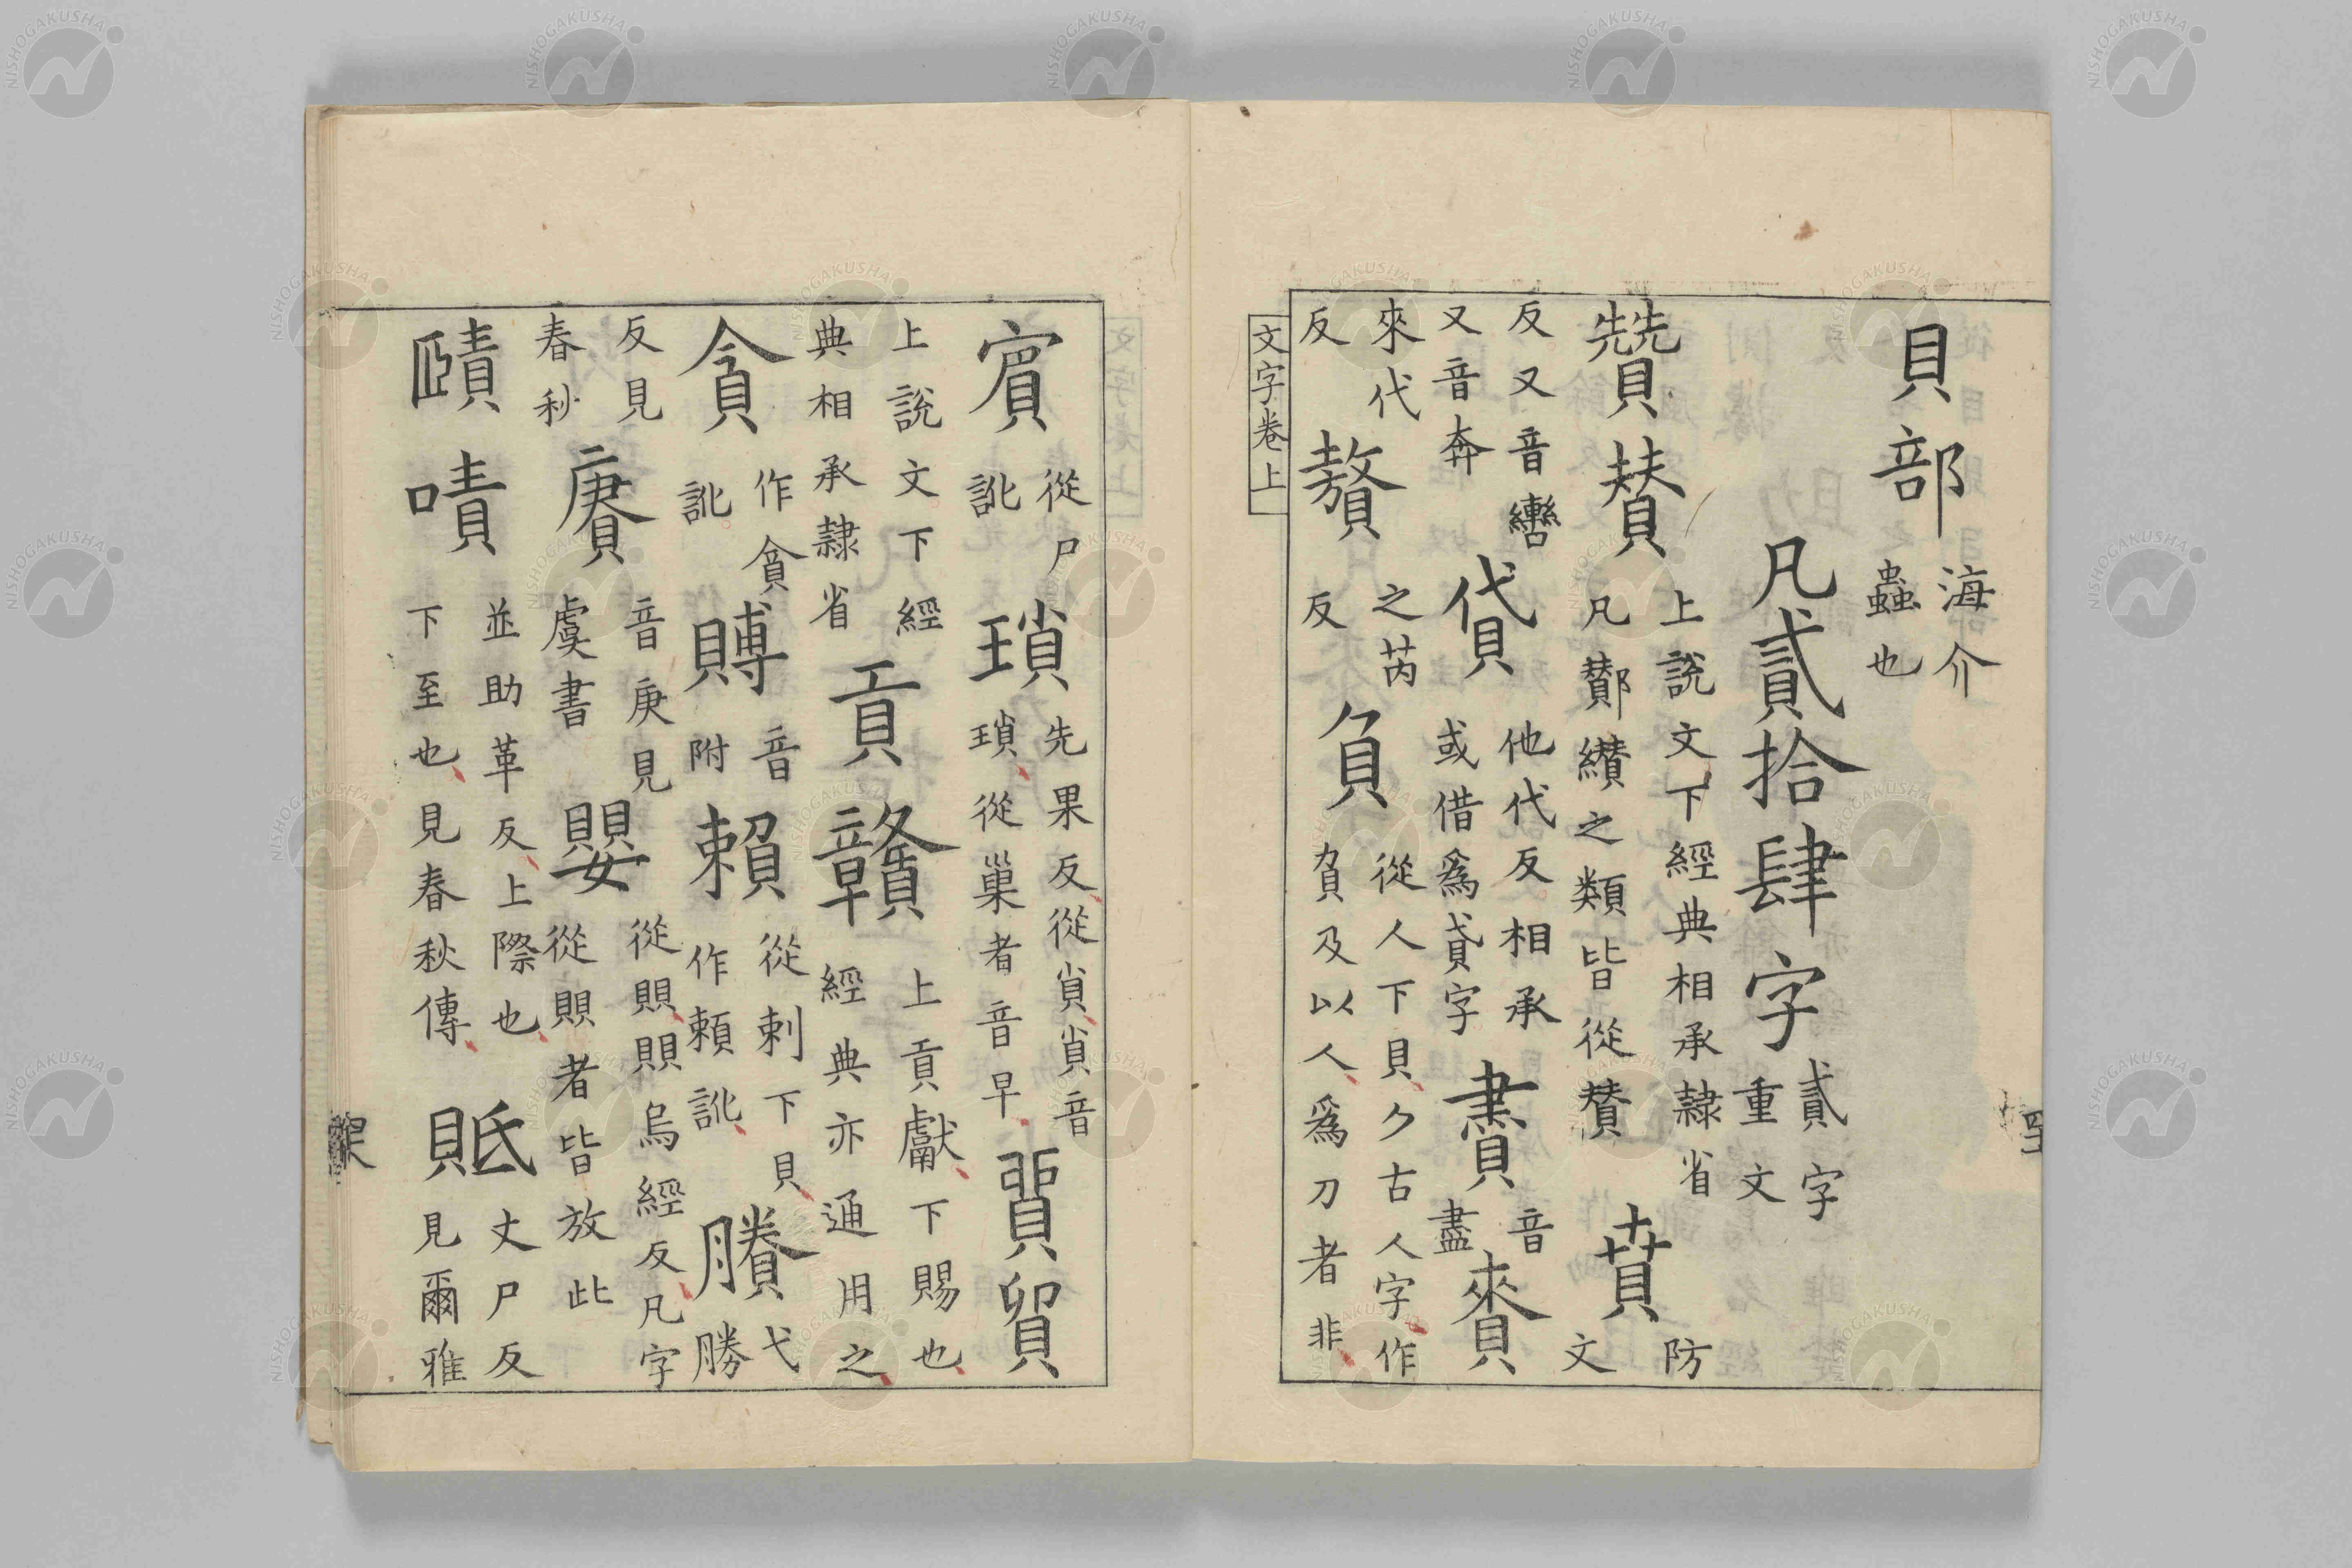 貝部海介蟲也
凡貳拾肆字貳字重文
賛賛上說文下經典相承隸省凡酇纘之類皆從賛賁防文
反又音轡又音奔貸他代反相承或借爲貣字賮音盡賚
來代反贅之芮反負從人下貝𠂊古人字作負及以人爲刀者非
文字卷上
賔從尸訛瑣先果反從𧴪𧴪音瑣從巢者音早賈貿
上說文下經典相承隸省貢贛上貢獻下賜也經典亦通用之
貪作貪訛賻音附賴從剌下貝作頼訛賸弋勝
反見春秋賡音庚見虞書嬰從賏賏烏經反凡字從賏者皆放此
賾嘖並助革反上際也下至也見春秋傳貾丈尸反見爾雅
NISHOGAKUSHA